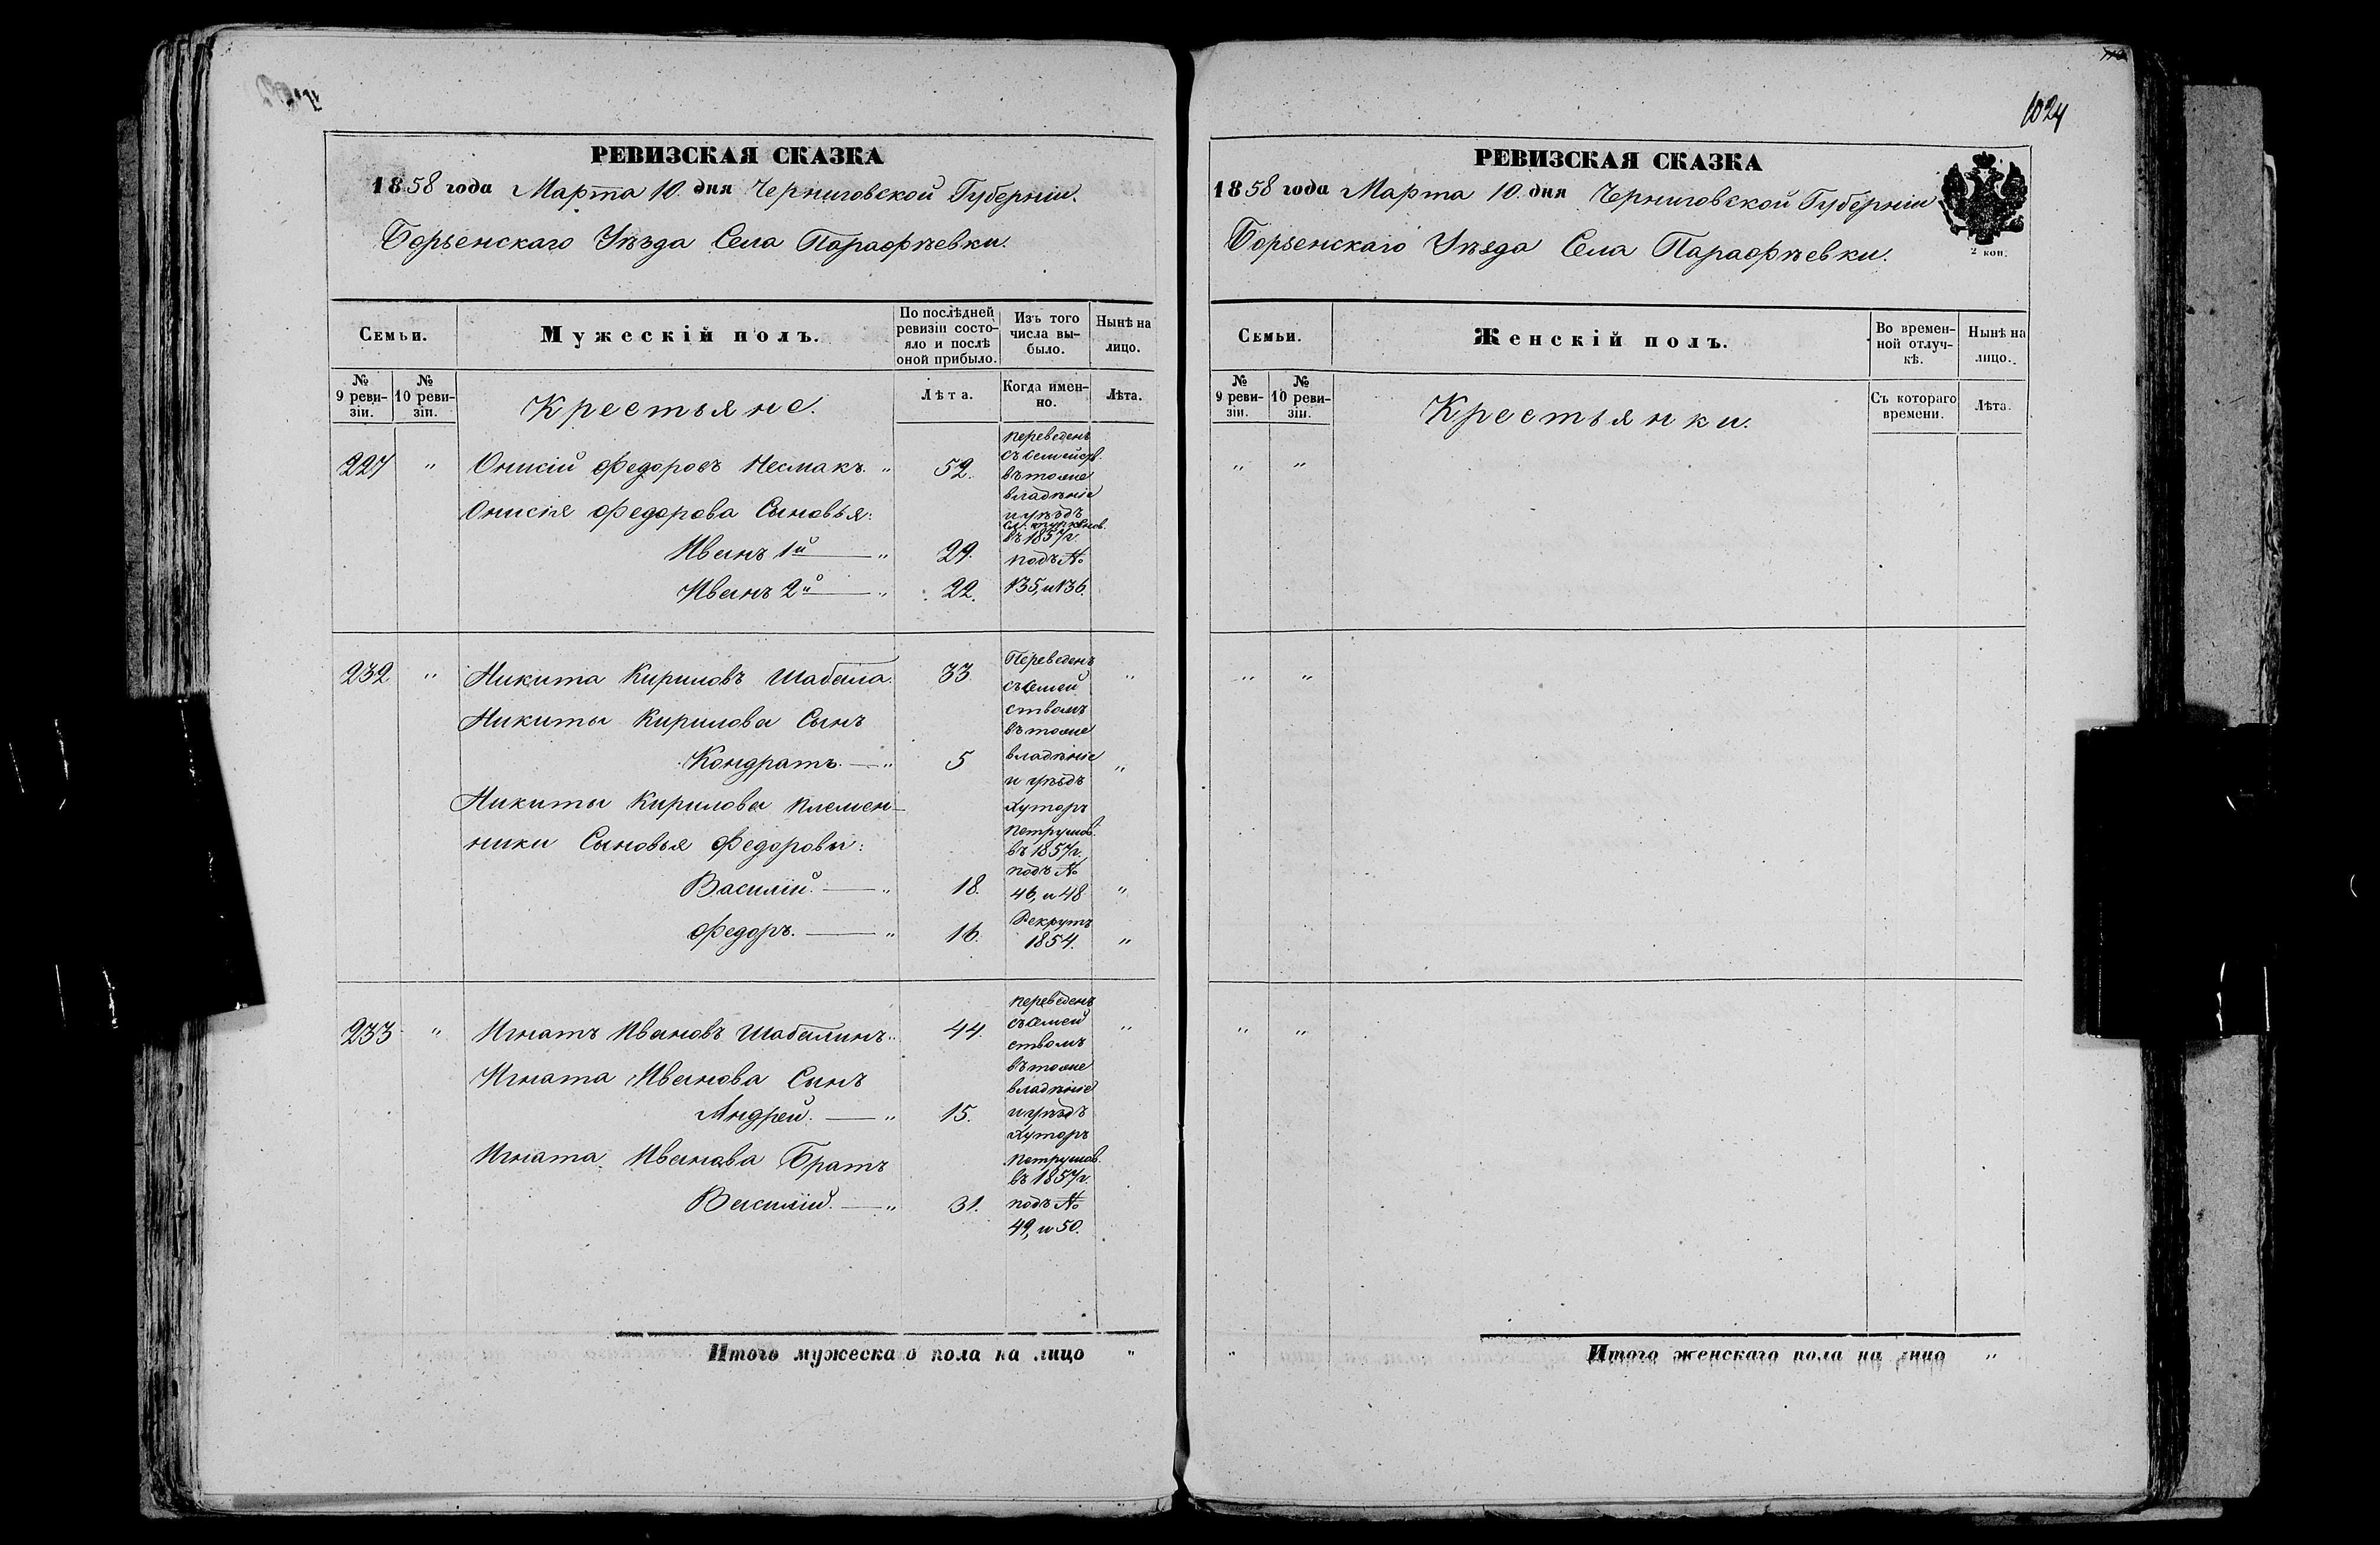 РЕВИЗСКАЯ СКАЗКА
1858 года Марта 10. дня Черниговской Губерніи.
Борзенскаго Уѣзда Села Парафѣевки.
Семьи.
Мужескій полъ.
По послѣдней ревизіи состояло и послѣ оной прибыло.
Изъ того числа выбыло.
Нынѣ на лицо.
№ 9 ревизіи.
№ 10 ревизіи.
Крестьяне.
Лѣта.
Когда именно.
Лѣта.
227 " Онисій Федоровъ Несмакъ. " 52.
Онисія Федорова Сыновья:
Иванъ 1й — " 29.
Иванъ 2й — " 22.
переведенъ
съ семейств.
въ тоже
владѣніе
и уѣздъ
въ 1857 г.
подъ №
135, и 136.
232 " Никита Кириловъ Шабала. 33 "
Никиты Кирилова Сынъ
Кондратъ. — " 5 "
Никиты Кирилова племен-
ники Сыновья Федоровы:
Василій. — " 18. "
Федоръ. — " 16. "
Переведенъ
съ семей
ствомъ
въ тоже
владѣніе
и уѣздъ
Хуторъ
Петрушов.
въ 1857 г.
подъ №
46, и 48
Рекрутъ
1854.
233 " Игнатъ Ивановъ Шабалинъ. " 44. "
Игната Иванова Сынъ
Андрей. — " 15.
Игната Иванова Братъ
Василій. — " 31.
переведенъ
съ семей
ствомъ
въ тоже
владѣніе
и уѣздъ
Хуторъ
Петрушов.
въ 1857 г.
подъ №
49, и 50.
Итого мужеска о пола на лицо "
1024
РЕВИЗСКАЯ СКАЗКА
1858 года Марта 10. дня Черниговской Губерніи
Борзенскаго Уѣзда Села Парафѣевки.
2 коп.
Семьи.
Женскій полъ.
Во временной отлучкѣ.
Нынѣ на лицо.
№ 9 ревизіи.
№ 10 ревизіи.
Крестьянки.
Съ котораго времени.
Лѣта.
" "
" "
" "
" Итого женскаго пола на лицо "